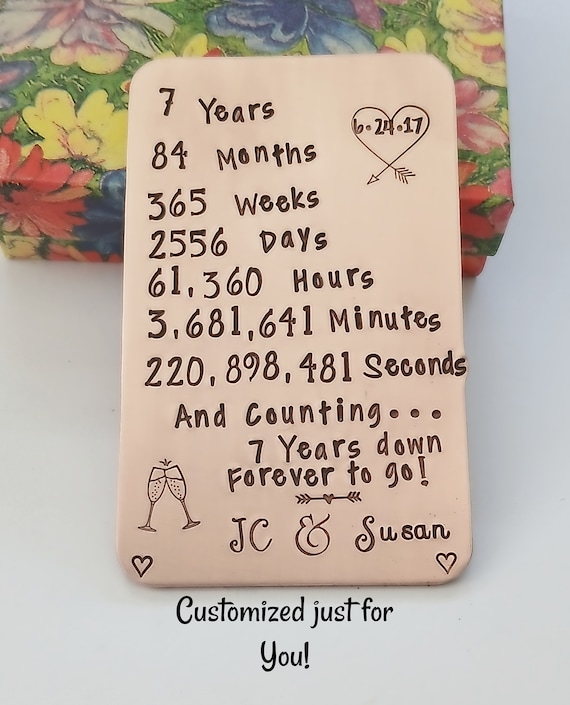 7 Years
6·24·17
84 Months
365 Weeks
2556 Days
61,360 Hours
3,681,641 Minutes
220,898,481 Seconds
And Counting...
7 Years down
Forever to go!
JC & Susan
Customized just for
You!